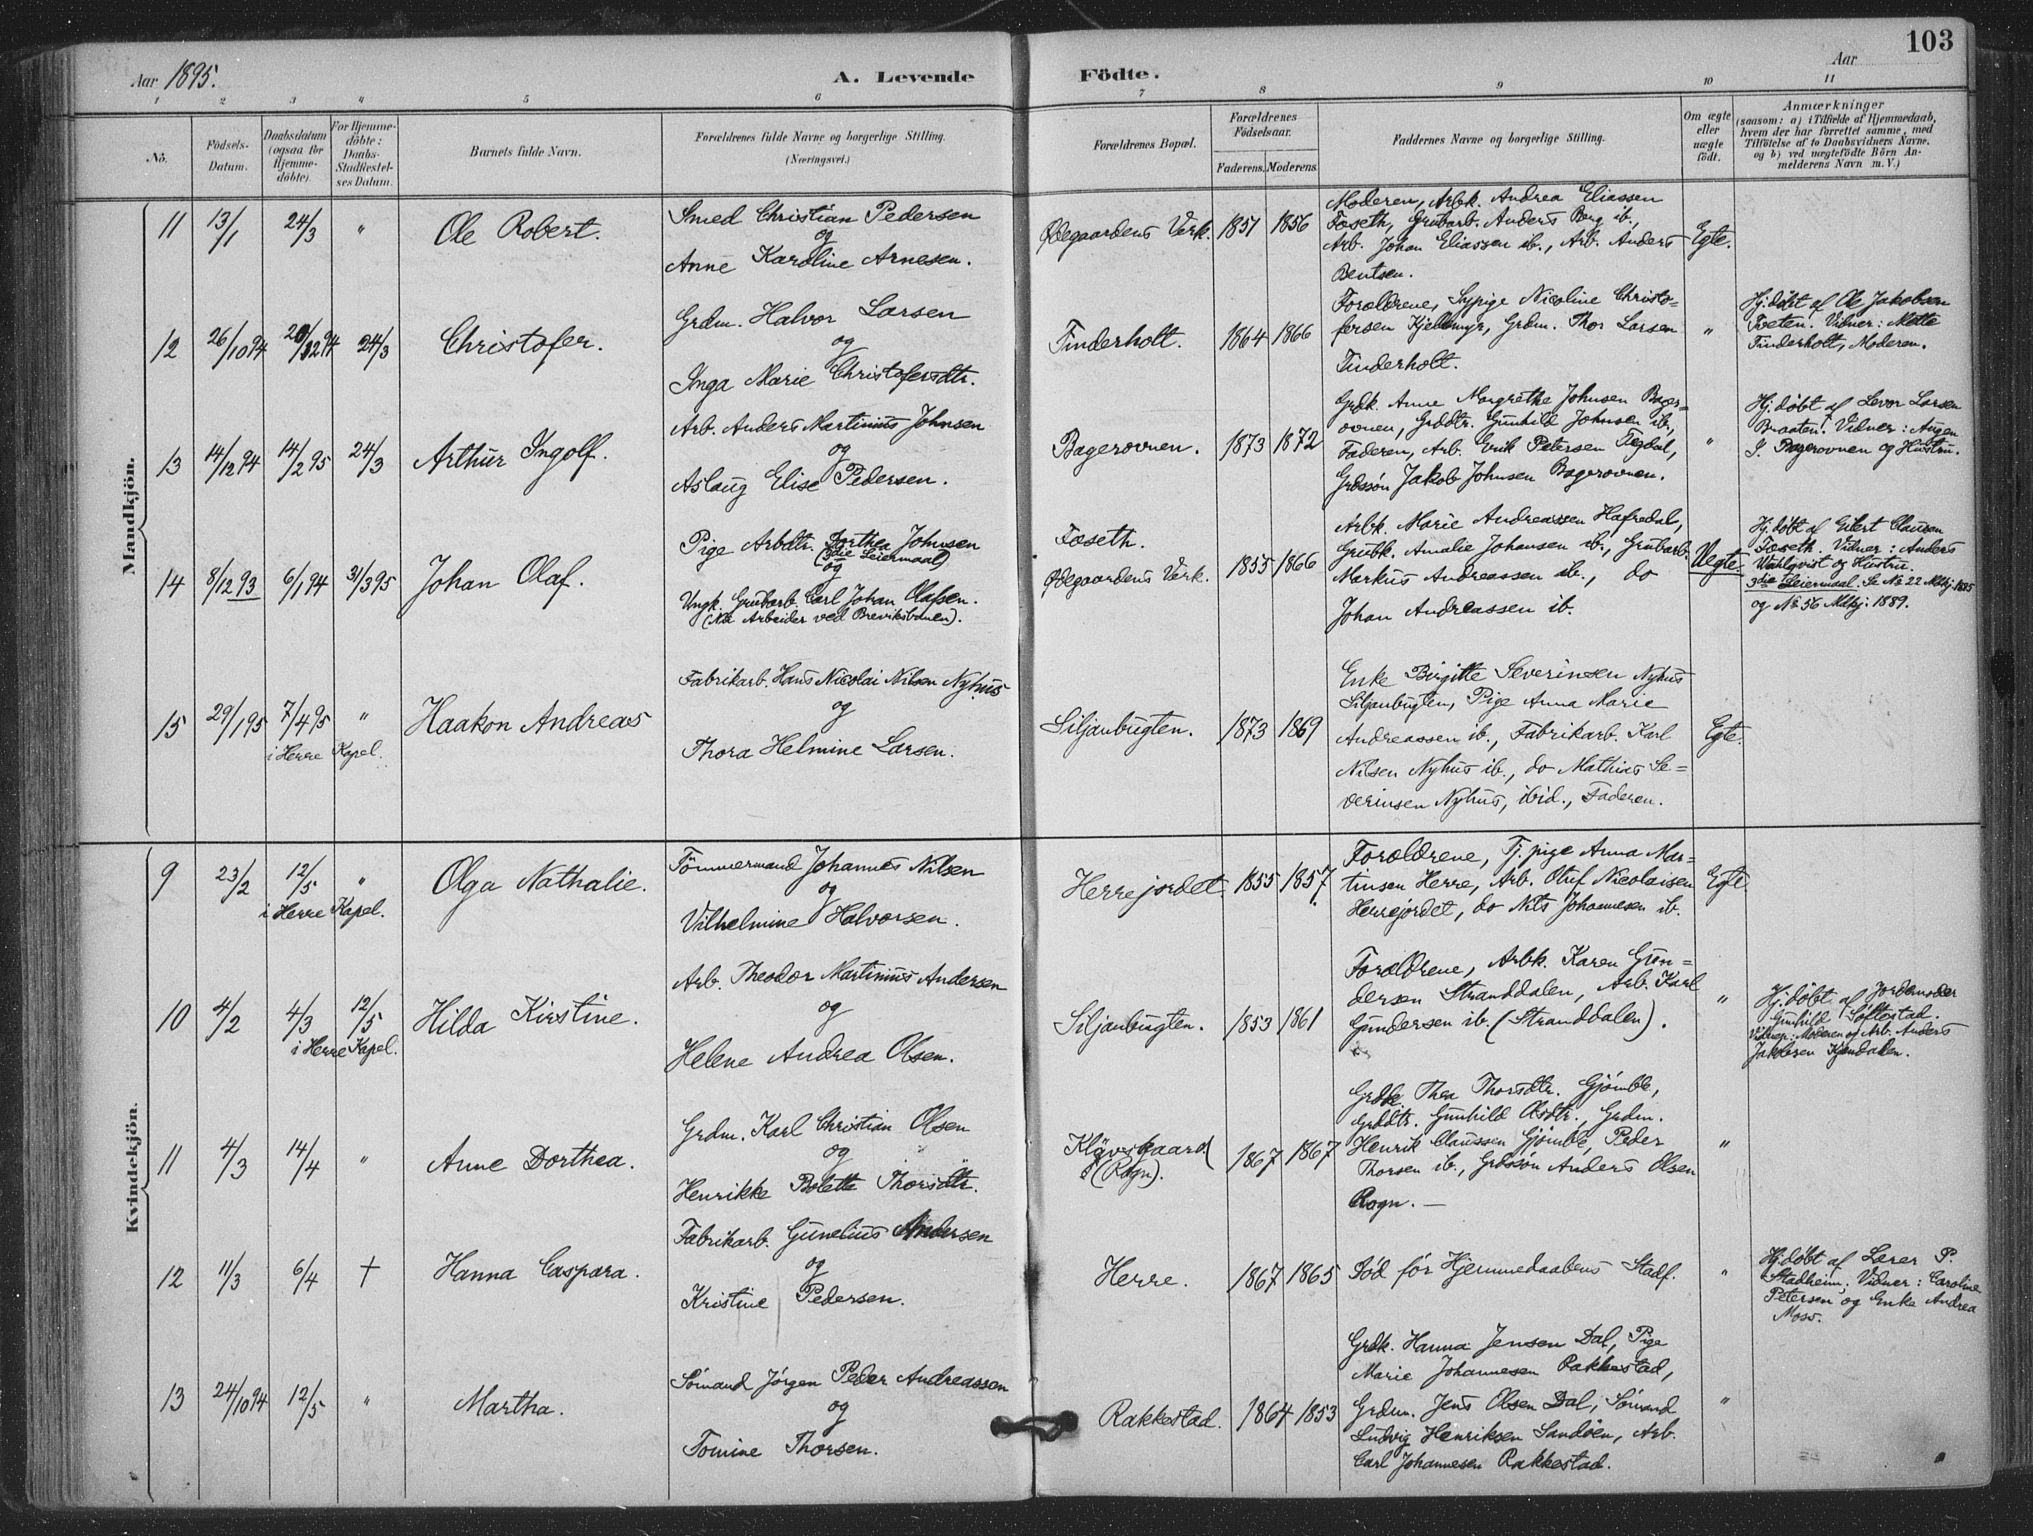 103
Aar 1895.
A. Levende Födte.
Aar
1 2 3 " 5 6 7 8 9 10 11
No.
Födsels-
Datum.
Daabsdatum
(ogsaa for
Hjemme-
døbte).
For Hjemme-
döbte:
Daabs-
Stadfæstel-
ses Datum.
Barnets fulde Navn.
Forældrenes fulde Navne og borgerlige Stilling.
(Næringsvei.)
Forældrenes Bopæl.
Forældrenes
Födselsaar.
Faderens. Moderens.
Faddernes Navne og borgerlige Stilling.
Om ægte
eller
uægte
födt.
Anmærkninger
(saasom: a) i Tilfælde af Hjemmedaab,
hvem der har forrettet samme, med
Tilföielse af to Daabsvidners Navne,
og b) ved uægtefödte Börn An-
melderens Navn m. V.)
Mandkjön.
11
13/1
24/3
"
Ole Robert.
Smed Christian Pedersen
og
Anne Karoline Arnesen.
Ødegaardens Verk.
1851 1856
Moderen, Arbk. Andrea Eliassen
Foseth, Grubarb. Anders Berg ib.,
Arb. Johan Eliassen ib., Arb. Anders
Bentsen.
Egte.
12
26/10 94
24/3
Christofer.
Grdm. Halvor Larsen
og
Inga Marie Christofersdtr.
Finderholt.
1864 1866
Forældrene, Sypige Nicoline Christo-
fersen Kjellmyr, Grdm. Thor Larsen
Finderholt.
"
Hj. døbt af Ole Jakobsen
Tveten. Vidner: Mette
Finderholt, Moderen.
13
14/12 94
14/2 95
24/3
Arthur Ingolf.
Arb. Anders Martinius Johnsen
og
Aslaug Elise Pedersen.
Bagerovnen.
1873 1872
Grdk. Anne Margrethe Johnsen Bager-
ovnen, Grddtr. Gunhild Johnsen ib.,
Faderen, Arb. Erik Petersen Tegdal,
Grdssøn Jakob Johnsen Bagerovnen.
"
Hj. døbt af Levor Larsen
Braaten. Vidner:
J. Bagerovnen og Hustru.
14
8/12 93
6/1 94
31/3 95
Johan Olaf.
Pige Arbdtr. Dorthea Johnsen
(3die Leiermaal)
og
Ungk. Grubarb. Carl Johan Olafsen.
(Nu Arbeider ved Breviksbanen).
Foseth.
Ødegaardens Verk.
1855 1866
Arbk. Marie Andreassen Hafredal,
Grubk. Amalie Johansen ib., Grubarb.
Markus Andreassen ib., do
Johan Andreassen ib.
Uegte.
Hj. døbt af Eilert Clausen
Foseth. Vidner: Anders
Wahlqvist og Hustru.
3die Leiermaal. Se No 22 Mdkj. 1885
og No 56 Mdkj. 1889.
15
29/1 95
7/4 95
"
i Herre Kapel.
Haakon Andreas
Fabrikarb. Hans Nicolai Nilsen Nyhus
og
Thora Helmine Larsen.
Siljanbugten.
1873 1869
Enke Birgitte Severinsen Nyhus
Siljanbugten, Pige Anna Marie
Andreassen ib., Fabrikarb. Karl
Nilsen Nyhus ib., do Mathias Se-
verinsen Nyhus, ibid., Faderen.
Egte.
Kvindekjön.
9
23/2
12/5
"
i Herre Kapel.
Olga Nathalie.
Tömmermand Johannes Nilsen
og
Vilhelmine Halvorsen.
Herrejordet.
1855 1857
Forældrene, Tj. pige Anna Mar-
tinsen Herre, Arb. Oluf Nicolaisen
Herrejordet, do Nils Johannesen ib.
Egte
10
4/2
4/3
12/5
i Herre Kapel.
Hilda Kirstine.
Arb. Theodor Martinius Andersen
og
Helene Andrea Olsen.
Siljanbugten.
1853 1861
Forældrene, Arbk. Karen Gun-
dersen Stranddalen, Arb. Karl
Gundersen ib. (Stranddalen).
"
Hj. døbt af Jordemoder
Gunhild Saltestad.
Vidner: Moderen og Arb. Anders
Jakobsen
11
4/3
14/4
"
Anne Dorthea.
Grdm. Karl Christian Olsen
og
Henrikke Bolette Thorsdtr.
Kløvsgaard
(Rogn).
1867 1867
Grdk. Thea Thorsdtr. Gjömle,
Grddtr. Gunhild Olsdtr., Grdm.
Henrik Claussen Gjömle, Peder
Thorsen ib., Grdssøn Anders Olsen
Rogn. —
"
12
11/3
6/4
+
Hanna Caspara.
Fabrikarb. Gunelius Andersen
og
Kristine Pedersen.
Herre.
1867 1865
Død før Hjemmedaabens Stadf.
"
Hj. døbt af Lærer P.
Stadheim. Vidner: Caroline
Petersen og Enke Andrea
Moss.
13
24/10 94
12/5
"
Martha.
Sömand Jørgen Peder Andreassen
og
Tomine Thorsen.
Rakkestad.
1864 1853
Grdk. Hanna Jensen Dal, Pige
Marie Johannesen Rakkestad,
Grdm. Jens Olsen Dal, Sömand
Ludvig Henriksen Sandöen, Arb.
Carl Johannesen Rakkestad.
"